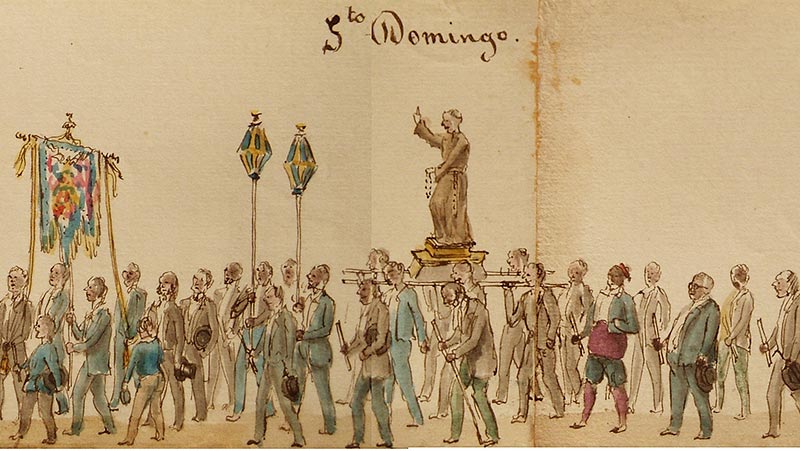 Sto Domingo.